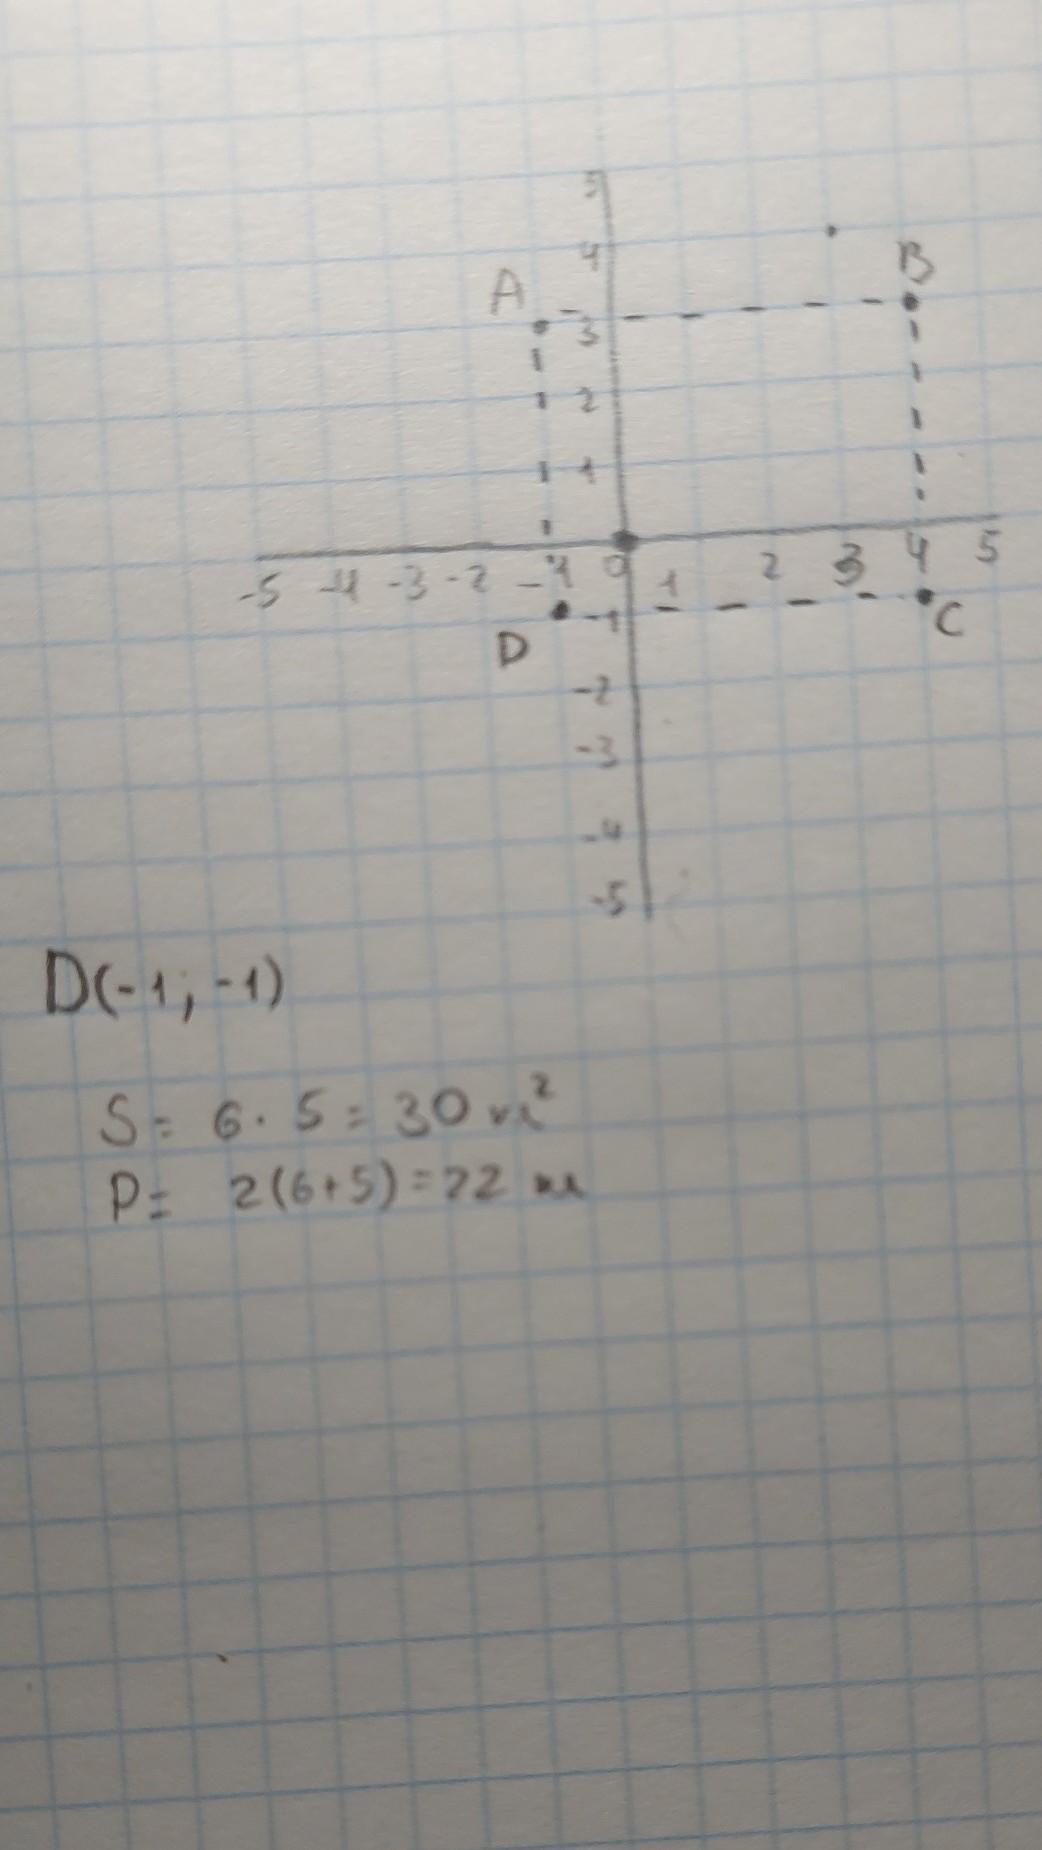 5
4
A
B
3
2
1
-5 -4 -3 -2 -1 0 1 2 3 4 5
D
-1
C
-2
-3
-4
-5
D(-1; -1)
S = 6 · 5 = 30
P = 2(6+5) = 22